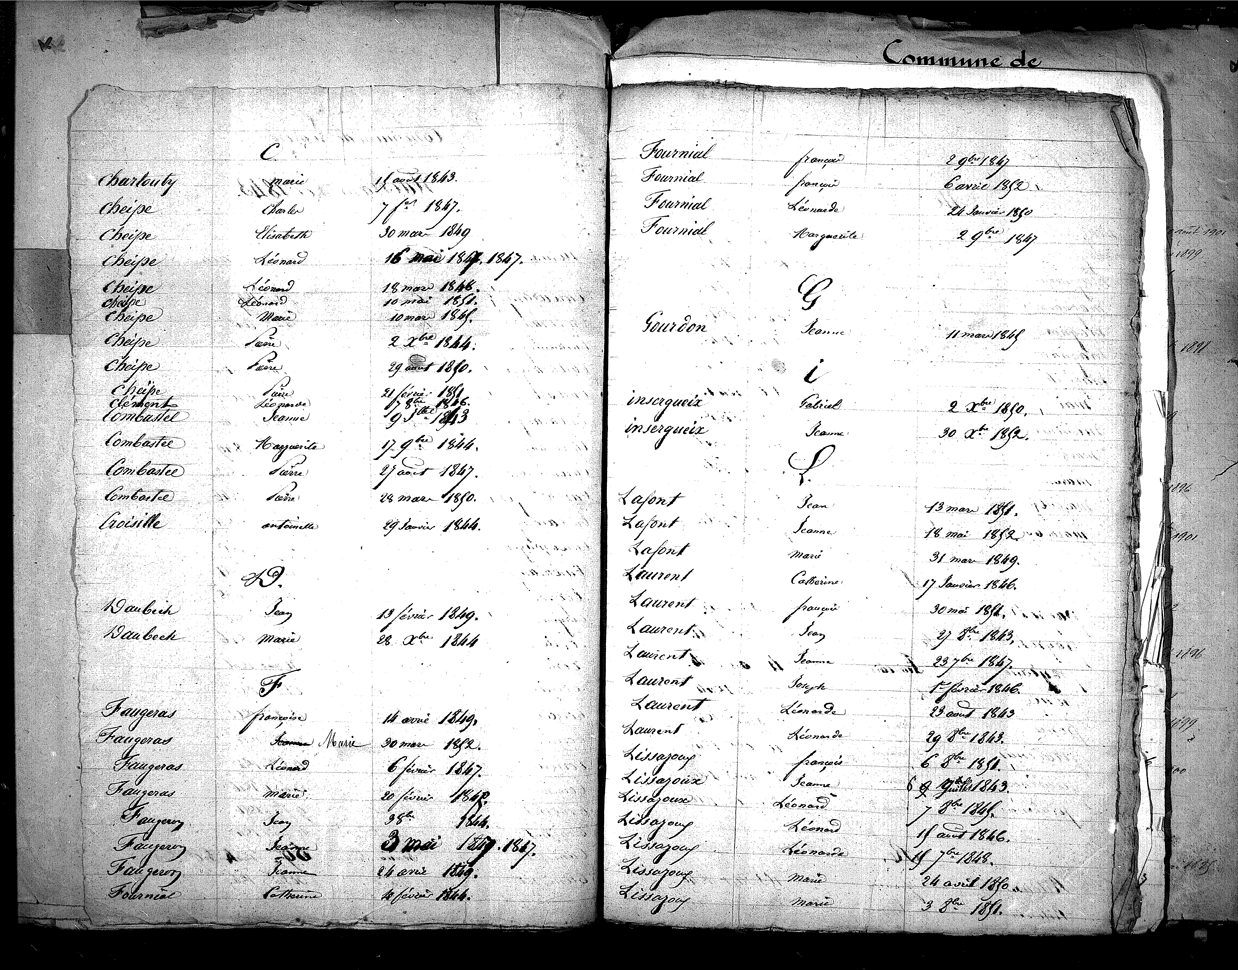 Commune de
C.
Chartouty marie 15 avril 1843.
Cheipe Charles 7 1847.
Cheipe Elisabeth 30 mars 1849
Cheipe Léonard 16 mai 1847. 1847.
Cheipe Léonard 18 mars 1846.
Cheipe Léonard 10 mai 1851.
Cheipe Marie 10 mars 1845.
Cheipe Pierre 2 Xbre 1844.
Cheipe Pierre 29 août 1850.
Cheipe Pierre 21 févrie 1851
Clément Léonarde 17 8bre 1846.
Combastel Jeanne 9 1843
Combastel Marguerite 17 9bre 1844.
Combastel Pierre 27 août 1847.
Combastel Pierre 28 mars 1850.
Croisille antoinette 29 Janvier 1844.
D.
Daubech Jean 13 février 1849.
Daubech Marie 28 Xbre 1844
F
Faugeras françoise 14 avril 1849.
Faugeras Jeanne Marie 30 mars 1852.
Faugeras Léonard 6 février 1847.
Faugeras marie 20 février 1848.
Faugeron Jean 1844.
Faugeron Jeanne 3 mai 1847. 1847.
Faugeron Jeanne 24 avril 1849.
Fournial Catherine 4 février 1844.
Fournial françois 2 9bre 1847
Fournial françois 6 avril 1852
Fournial Léonarde 24 Janvier 1850
Fournial Marguerite 2 9bre 1847
G
Gourdon Jeanne 11 mars 1845
i
insergueix Gabriel 2 Xbre 1850.
insergueix Jeanne 30 Xbre 1852.
L.
Lafont Jean 13 mars 1851.
Lafont Jeanne 18 mai 1852
Lafont marie 31 mars 1849.
Laurent Catherine 17 Janvier 1846.
Laurent françois 30 mai 1851.
Laurent Jean 27 8bre 1843.
Laurent Jeanne 23 7bre 1847.
Laurent Joseph 1er février 1846.
Laurent Léonarde 23 août 1843
Laurent Léonarde 29 8bre 1843.
Lissajoux françois 6 8bre 1851.
Lissajoux Jeanne 1843.
Lissajoux Léonard 7 8bre 1845.
Lissajoux Léonard 15 août 1846.
Lissajoux Léonarde 15 7bre 1848.
Lissajoux Marie 24 avril 1850
Lissajoux marie 3 8bre 1851.